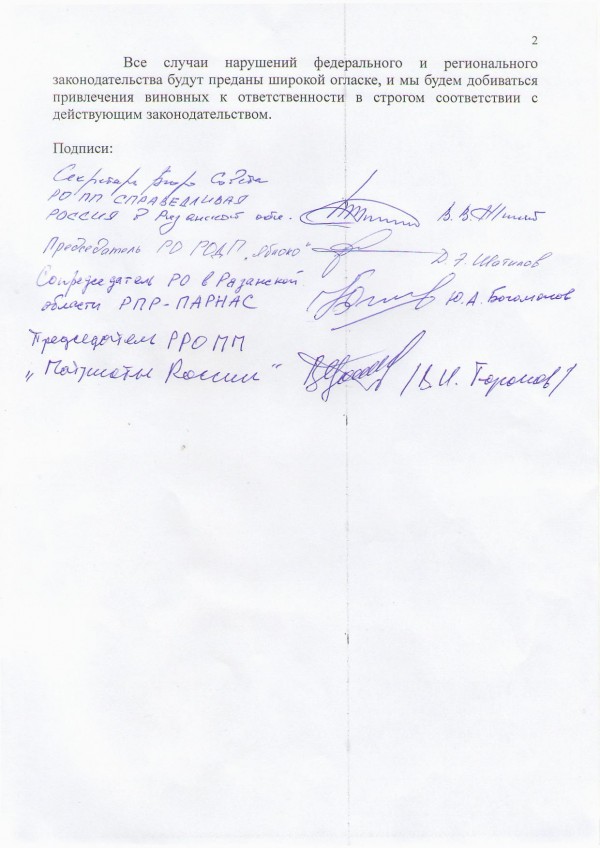 2
Все случаи нарушений федерального и регионального
законодательства будут преданы широкой огласке, и мы будем добиваться
привлечения виновных к ответственности в строгом соответствии с
действующим законодательством.
Подписи:
Секретарь Бюро Совета
РО ПП СПРАВЕДЛИВАЯ
РОССИЯ в Рязанской обл. В. В.
Председатель РО РОДП „Яблоко“ Д. Э. Шатилов
Сопредседатель РО в Рязанской
области РПР-ПАРНАС Ю. А. Богомолов
Председатель РРО ПП
„Патриоты России“ /В. И. /